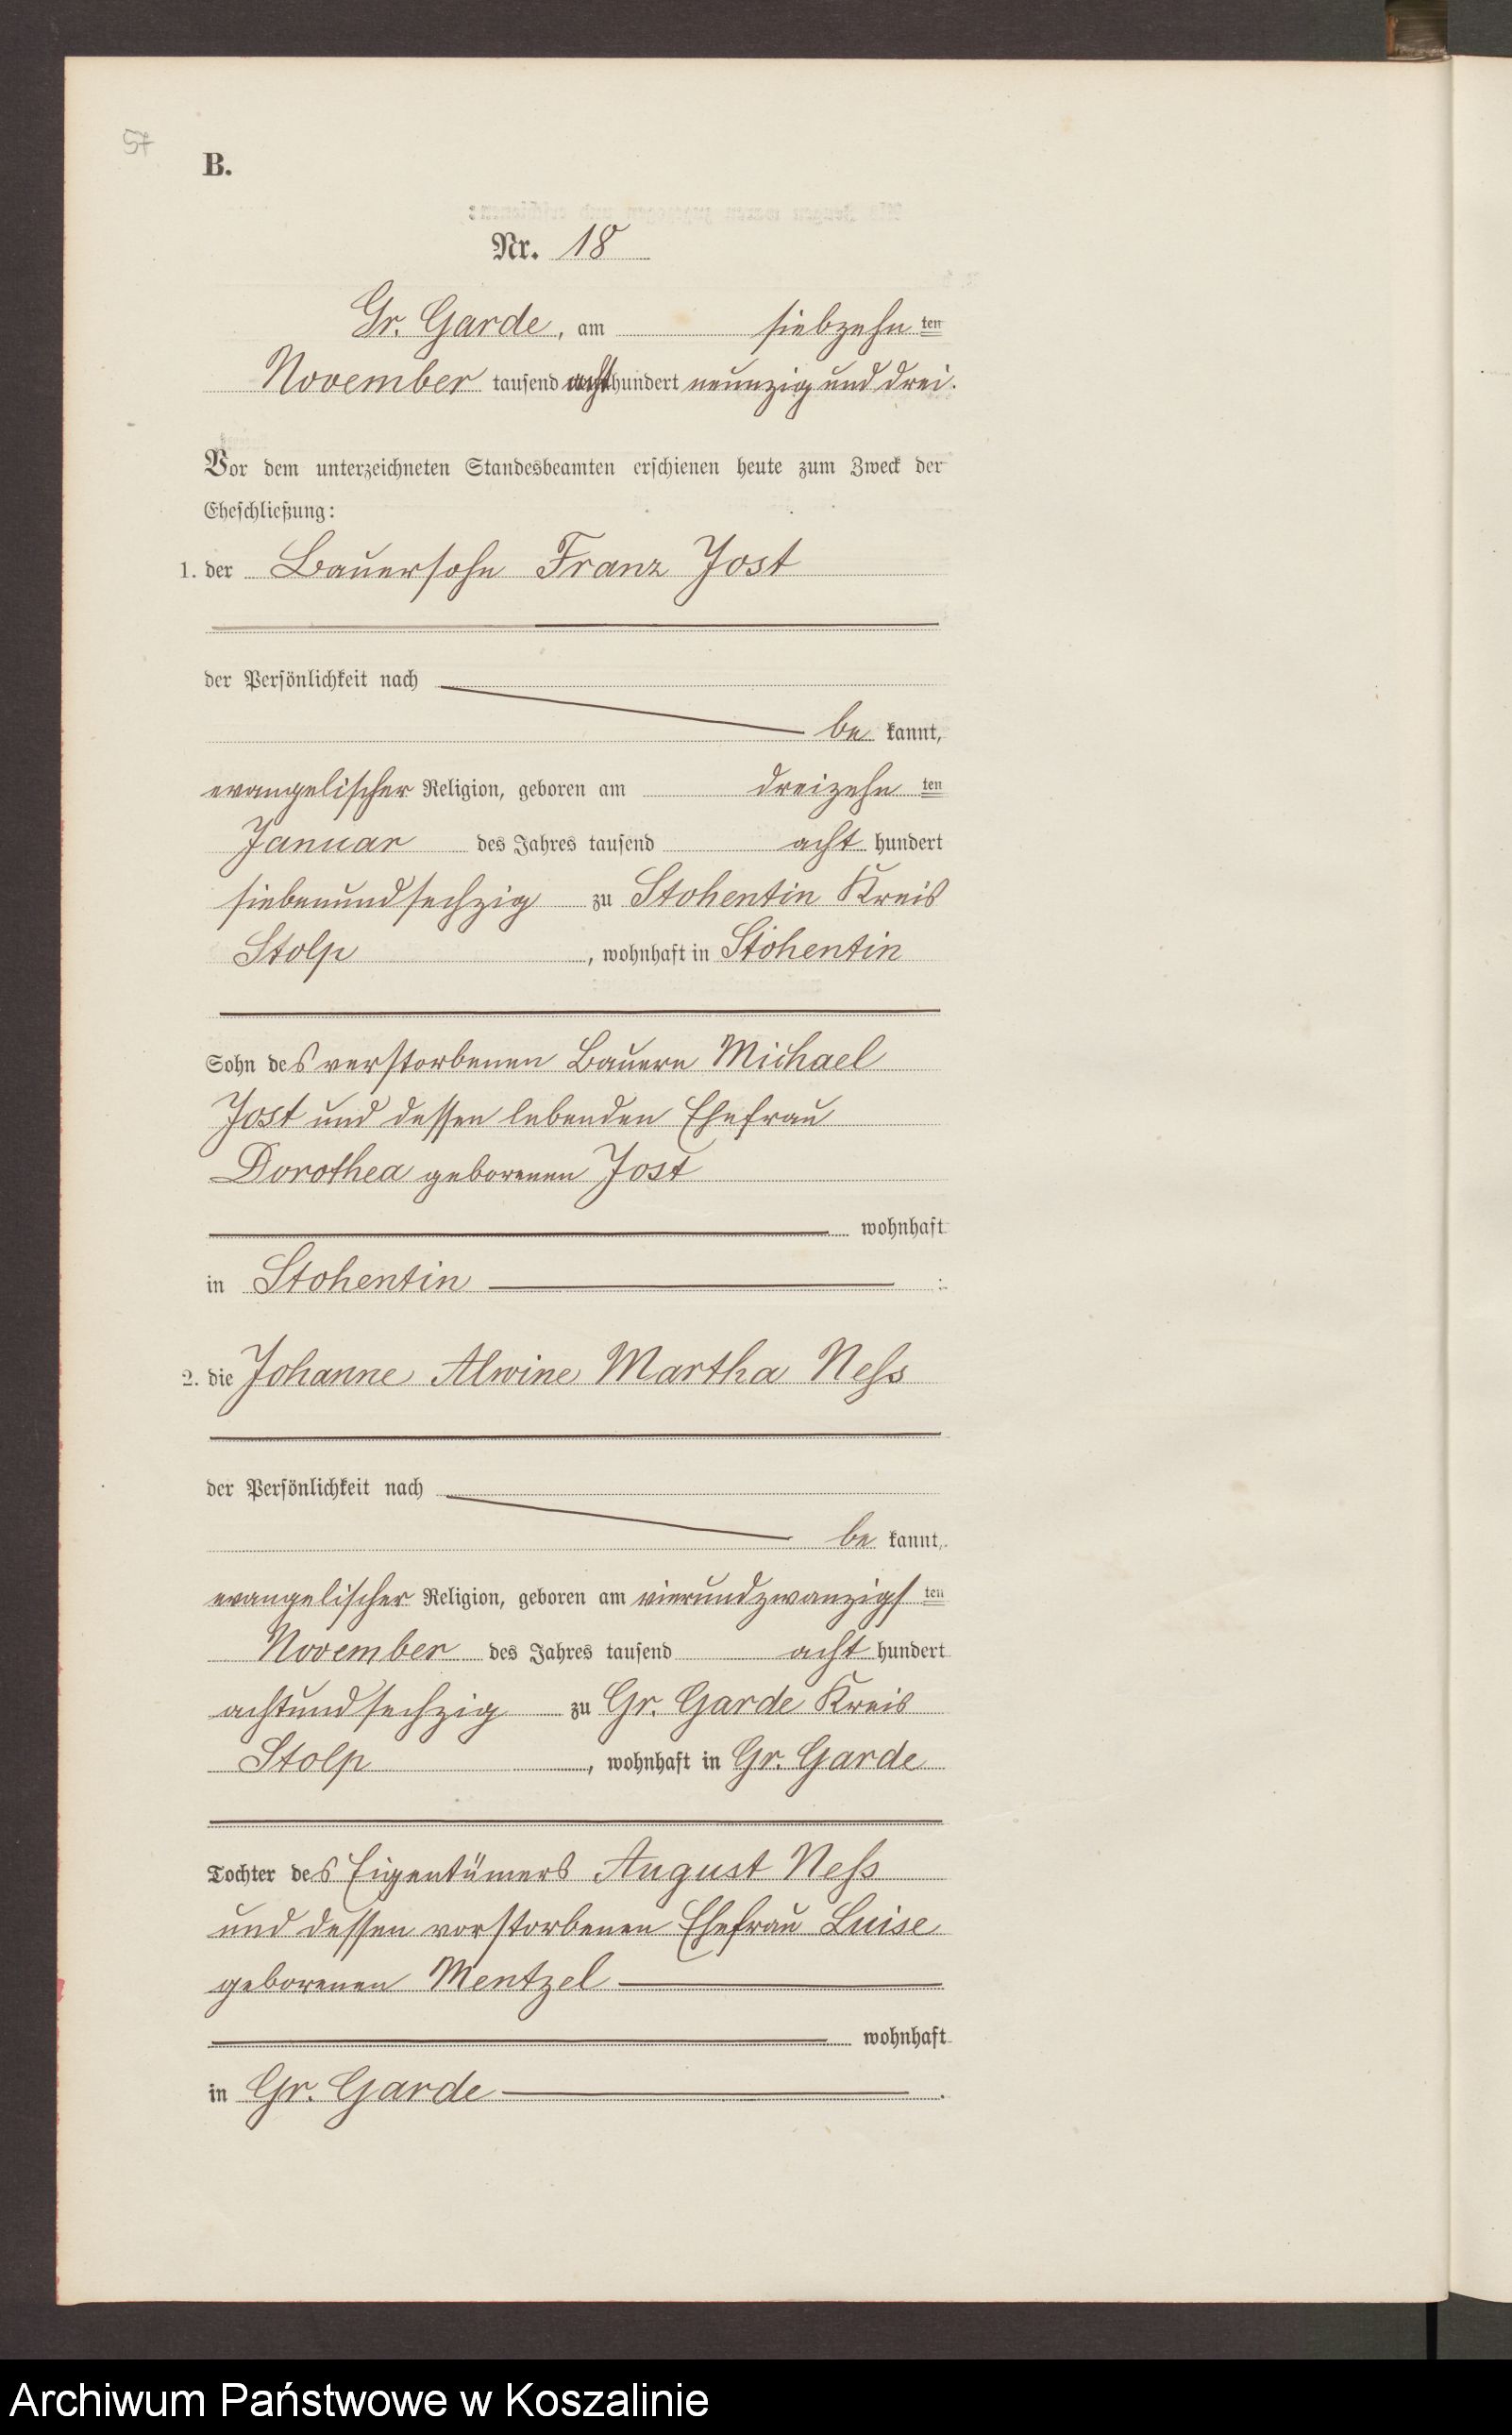 57
B.
Nr. 18
Gr. Garde, am siebzehn ten
November tausend acht hundert neunzig und drei.
Vor dem unterzeichneten Standesbeamten erschienen heute zum Zweck der
Eheschließung:
1. der Bauersohn Franz Jost
der Persönlichkeit nach
be kannt,
evangelischer Religion, geboren am dreizehn ten
Januar des Jahres tausend acht hundert
siebenundsechzig zu Stohentin Kreis
Stolp, wohnhaft in Stohentin
Sohn des verstorbenen Bauern Michael
Jost und dessen lebenden Ehefrau
Dorothea geborenen Jost
wohnhaft
in Stohentin :
2. die Johanne Alwine Martha Neß
der Persönlichkeit nach
be kannt,
evangelischer Religion, geboren am vierundzwanzigs ten
November des Jahres tausend acht hundert
achtundsechzig zu Gr. Garde Kreis
Stolp, wohnhaft in Gr. Garde
Tochter des Eigentümers August Neß
und dessen verstorbenen Ehefrau Luise
geborenen Mentzel
wohnhaft
in Gr. Garde .
Archiwum Państwowe w Koszalinie